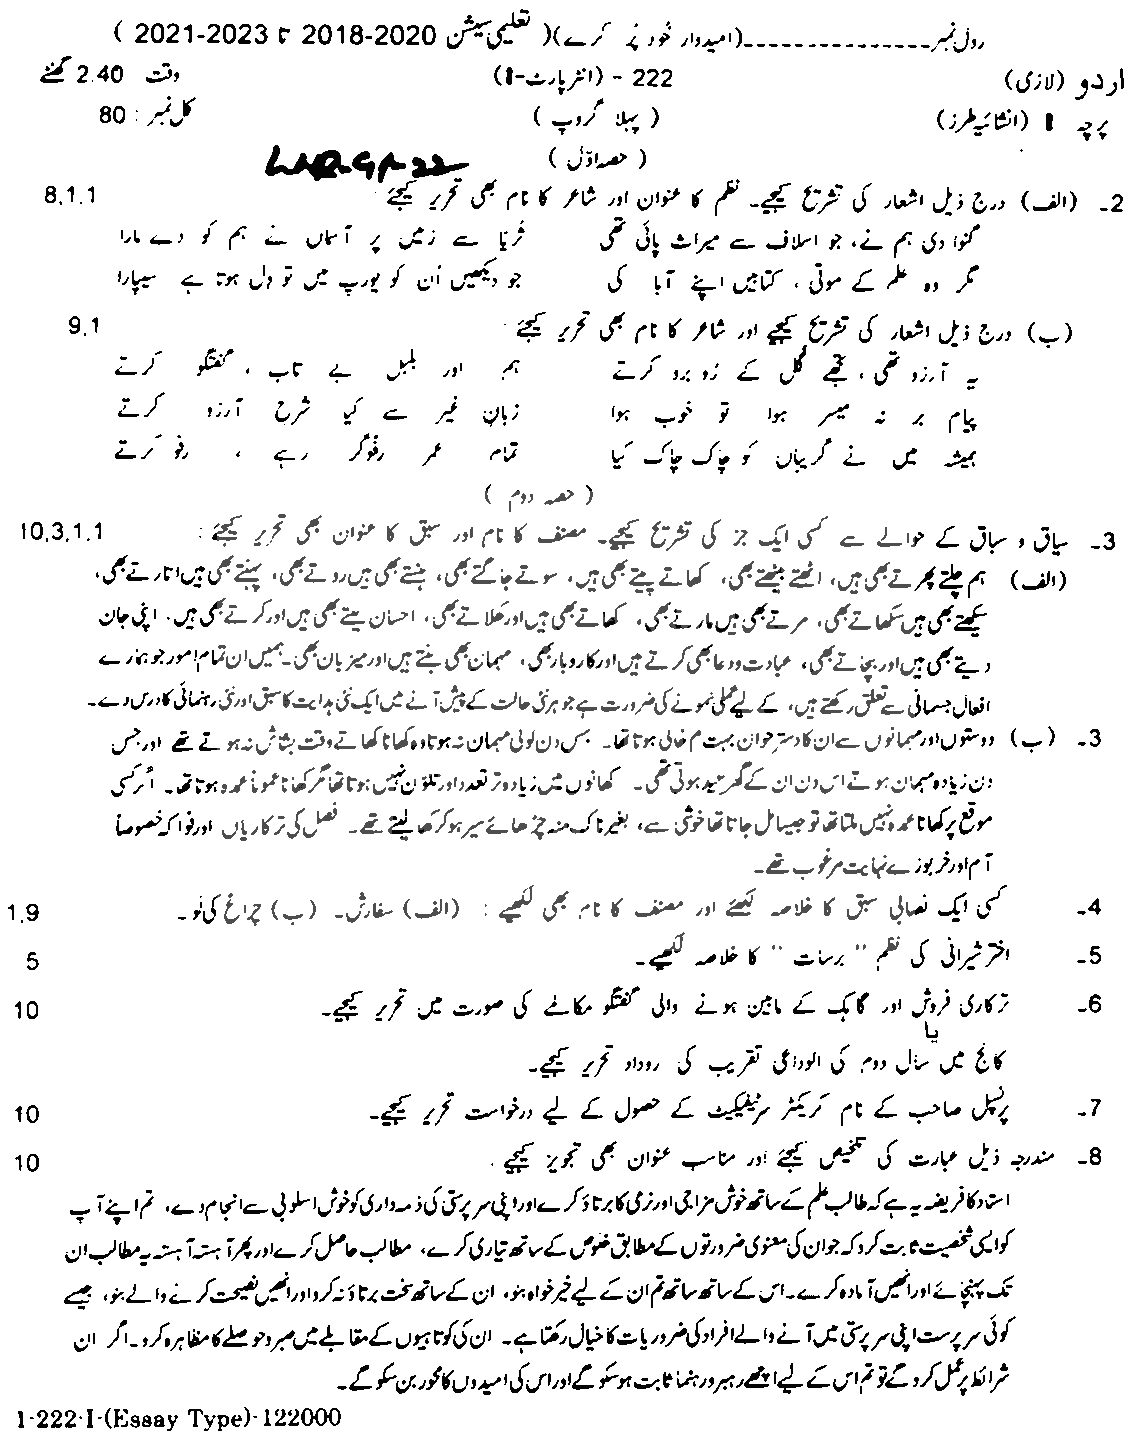 رول نمبر ــــــــــــــــ (امیدوار خود پُر کرے) ( تعلیمی سیشن 2018-2020 تا 2021-2023 )
اردو (لازمی) 222 - (انٹر پارٹ-I) وقت 2.40 گھنٹے
پرچہ I (انشائیہ طرز) ( پہلا گروپ ) کل نمبر : 80
( حصہ اوّل )
2۔ (الف) درج ذیل اشعار کی تشریح کیجیے۔ نظم کا عنوان اور شاعر کا نام بھی تحریر کیجیے 8,1,1
گنوا دی ہم نے، جو اسلاف سے میراث پائی تھی ثریّا سے زمیں پر آسماں نے ہم کو دے مارا
مگر وہ علم کے موتی ، کتابیں اپنے آبا کی جو دیکھیں اُن کو یورپ میں تو دل ہوتا ہے سیپارا
(ب) درج ذیل اشعار کی تشریح کیجیے اور شاعر کا نام بھی تحریر کیجیے : 9,1
یہ آرزو تھی ، تجھے گُل کے رُو برو کرتے ہم اور بلبل بے تاب ، گفتگو کرتے
پیام بر نہ میسر ہوا تو خوب ہوا زبانِ غیر سے کیا شرح آرزو کرتے
ہمیشہ میں نے گریباں کو چاک چاک کیا تمام عمر رفوگر رہے ، رفو کرتے
( حصہ دوم )
3۔ سیاق و سباق کے حوالے سے کسی ایک جز کی تشریح کیجیے۔ مصنف کا نام اور سبق کا عنوان بھی تحریر کیجیے : 10,3,1,1
(الف) ہم چلتے پھرتے بھی ہیں، اٹھتے بیٹھتے بھی، کھاتے پیتے بھی ہیں، سوتے جاگتے بھی، ہنستے بھی ہیں روتے بھی، پہنتے بھی ہیں اتارتے بھی،
سیکھتے بھی ہیں سکھاتے بھی، مرتے بھی ہیں مارتے بھی، کھاتے بھی ہیں اور کھلاتے بھی، احسان لیتے بھی ہیں اور کرتے بھی ہیں، اپنی جان
دیتے بھی ہیں اور بچاتے بھی، عبادت و دعا بھی کرتے ہیں اور کاروبار بھی، مہمان بھی بنتے ہیں اور میزبان بھی۔ ہمیں ان تمام امور جو ہمارے
افعال جسمانی سے تعلق رکھتے ہیں، کے لیے عملی نمونے کی ضرورت ہے جو ہر نئی حالت کے پیش آنے میں ایک نئی ہدایت کا سبق اور نئی رہنمائی کا درس دے۔
3۔ (ب) دوستوں اور مہمانوں سے ان کا دسترخوان بہت کم خالی ہوتا تھا۔ جس دن کوئی مہمان نہ ہوتا وہ کھانا کھاتے وقت بشاش نہ ہوتے تھے اور جس
دن زیادہ مہمان ہوتے اس دن ان کے گھر عید ہوتی تھی۔ کھانوں میں زیادہ تر تعدد اور تلوّن نہیں ہوتا تھا مگر کھانا عموماً عمدہ ہوتا تھا۔ اگر کسی
موقع پر کھانا عمدہ نہیں ملتا تھا تو جیسا مل جاتا تھا خوشی سے، بغیر ناک منہ چڑھائے سیر ہو کر کھا لیتے تھے۔ فصل کی ترکاریاں اور فواکہ خصوصاً
آم اور خربوزے نہایت مرغوب تھے۔
4۔ کسی ایک نصابی سبق کا خلاصہ لکھئے اور مصنف کا نام بھی لکھیے : (الف) سفارش۔ (ب) چراغ کی لَو۔ 1,9
5۔ اختر شیرانی کی نظم " برسات " کا خلاصہ لکھیے۔ 5
6۔ ترکاری فروش اور گاہک کے مابین ہونے والی گفتگو مکالمے کی صورت میں تحریر کیجیے۔ 10
یا
کالج میں سال دوم کی الوداعی تقریب کی روداد تحریر کیجیے۔
7۔ پرنسپل صاحب کے نام کریکٹر سرٹیفکیٹ کے حصول کے لیے درخواست تحریر کیجیے۔ 10
8۔ مندرجہ ذیل عبارت کی تلخیص کیجئے اور مناسب عنوان بھی تجویز کیجیے . 10
استاد کا فریضہ یہ ہے کہ طالب علم کے ساتھ خوش مزاجی اور نرمی کا برتاؤ کرے اور اپنی سرپرستی کی ذمہ داری کو خوش اسلوبی سے انجام دے، تم اپنے آپ
کو ایسی شخصیت ثابت کرو کہ جو ان کی معنوی ضرورتوں کے مطابق خلوص کے ساتھ تیاری کرے، مطالب حاصل کرے اور پھر آہستہ آہستہ یہ مطالب ان
تک پہنچائے اور انھیں آمادہ کرے۔ اس کے ساتھ ساتھ تم ان کے لیے خیر خواہ بنو، ان کے ساتھ سخت برتاؤ نہ کرو اور انھیں نصیحت کرنے والے بنو، جیسے
کوئی سرپرست اپنی سرپرستی میں آنے والے افراد کی ضروریات کا خیال رکھتا ہے۔ ان کی کوتاہیوں کے مقابلے میں صبر و حوصلے کا مظاہرہ کرو۔ اگر ان
شرائط پر عمل کرو گے تو تم اس کے لیے اچھے رہبر و رہنما ثابت ہو سکو گے اور اس کی امیدوں کا محور بن سکو گے۔
1-222-I-(Essay Type)-122000